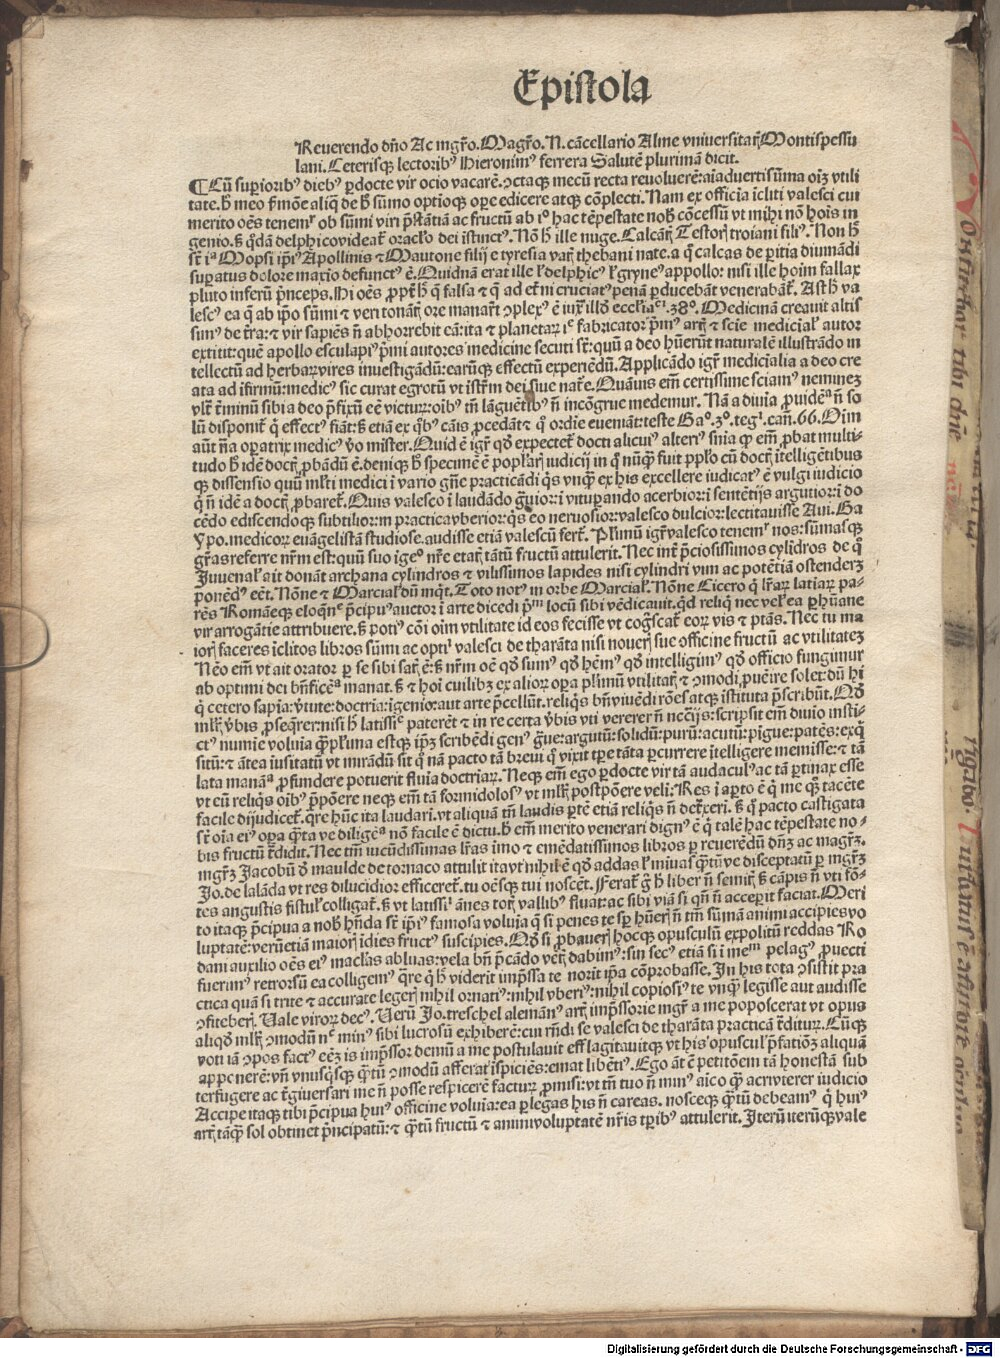 Epistola
Reuerendo dño Ac mgr̃o. Magr̃o. N. cãcellario Alme vniuersitat̃ Montispessu
lani. Ceterisq; lectoribꝰ Hieronimꝰ ferrera Salutẽ plurimã dicit.
¶ Cũ supioribꝰ diebꝰ ꝑdocte vir ocio vacarẽ. ↄctaq; mecũ recta reuoluerẽ: aĩaduerti sũma oĩʒ vtili
tate. ħ meo f̃mõne aliq̃ de ħ sũmo optioq; oꝑe edicere atq; cõplecti. Nam ex officia ĩcliti valesci cui
merito oẽs tenemʳ ob sũmi viri p̃stãtiã ac fructũ ab iº hac tẽpestate nob̃ cõcessũ vt mihi nõ hoĩs in
genio. ꝫ q̃dã delphico videat̃ oraclo dei istinctꝰ. Nõ ħ ille nuge. Calcãt̃ Testorĩ troiani filiꝰ. Non ħ
st̃ iª Mopsi ip̃iꝰ Apollinis ⁊ Mautone filij e tyresia vat̃ thebani nate. a q̃ calcas de ꝑitia diuinãdi
suꝑatus dolore mario defunctꝰ ẽ. Quidnã erat ille l̃ delphicꝰ l̃ gryneꝰ appollo: nisi ille hoĩm fallax
pluto inferũ p̃nceps. Hi oẽs ꝓpt̃ ħ q̃ falsa ⁊ q̃ ad et̃ni cruciatꝰ penã ꝑducebãt venerabãt̃. Ast ħ va
lescꝰ ea q̃ ab ip̃o sũmi ⁊ veri tonãt̃ ore manar̃t ↄplexꝰ ẽ iuxᵗ illð eccl̃iaᶜⁱ. 38º. Medicinã creauit altis
simꝰ de t̃ra: ⁊ vir sapiẽs ñ abhorrebit eã: ita ⁊ planetarꝝ iᶜ fabricator p̃mꝰ art̃ ⁊ scie medicial̃ autor
extitit: quẽ apollo esculapiꝰ p̃mi autores medicine secuti st̃: quũ a deo hũerũt naturalẽ illustrãdo in
tellectũ ad herbarꝝ vires inuestigãdũ: earũq; effectũ experiẽdũ. Applicãdo igr̃ medicialia a deo cre
ata ad ifirmũ: medicꝰ sic curat egrotũ vt istr̃m dei siue nat̃e. Quãuis em̃ certissime sciamꝰ nemineʒ
vlt̃ t̃minũ sibi a deo p̃fixũ eẽ victurꝝ: oibꝰ tm̃ lãguẽtibꝰ ñ incõgrue medemur. Nã a diuia ꝓuidẽª ñ so
lũ disponit̃ q̃ effectꝰ fiãt: ꝫ etiã ex q̃bꝰ cãis ꝓcedãt ⁊ q̃ ordie eueniãt: teste Gaº. 3º. tegⁱ. can̄. 66. Oĩm
aũt ña oꝑatrix medicꝰ v̊o mĩster. Quid ẽ igr̃ qð expectet̃ docti alicuiꝰ alteriꝰ snĩa q̃ em̃ ꝓbat multi-
tudo ħ idẽ doct̃ ꝓbãdũ ẽ. deniq; ħ specimẽ ẽ popl̃arĩ iudicij in q̃ nũq̃ fuit ppl̃o cũ doct̃ ĩtelligẽtibus
q; dissensio quũ ml̃ti medici ĩ vario gñe practicãdi q̃s vnq̃ ex his excellere iudicatꝰ ẽ vulgi iudicio
q̃ ñ idẽ a doct̃ ꝓbaret̃. Quis valesco ĩ laudãdo g̃uior: ĩ vitupando acerbior: ĩ sentẽtijs argutior: ĩ do
cẽdo ediscendoq; subtilior: in practica vberior: q̃s eo neruosior: valesco dulcior: lectitauisse Aui. Ga
Ypo. medicorꝝ euãgelistã studiose. audisse etiã valescũ fert̃. Pl̃imũ igr̃ valesco tenemʳ nos: sũmasq;
gr̃as referre nr̃m est: quũ suo igeº nr̃e etat̃ tãtũ fructũ attulerit. Nec int̃ p̃ciosissimos cylĩdros de q̃
Juuenal̃ ait donãt archana cylindros ⁊ vilissimos lapides nisi cylindri vim ac potẽtiã ostenderʒ
ponẽdꝰ eẽt. Nõne ⁊ Marcial̃ dũ inq̃t. Toto notꝰ in orbe Marcial̃. Nõne Cicero q̃ lr̃arꝝ latiarꝝ pa-
rẽs Romãeq; eloqñᵉ p̃cipuꝰ auctor ĩ arte dicẽdi p̃ᵐ locũ sibi vẽdicauit. qd̃ reliq̃ nec vel̃ ea ꝑ hũane
vir arrogãtie attribuere. ꝫ potiꝰ cõi oĩm vtilitate id eos fecisse vt cog̃scat̃ eorꝝ vis ⁊ ptãs. Nec tu ma
iorĩ faceres ĩclitos libros sũmi ac optĩ valesci de tharãta nisi nouerĩ sue officine fructũ ac vtilitateʒ
Nẽo em̃ vt ait orator ꝑ se sibi sat̃ ẽ: ꝫ nr̃m oẽ qð sumꝰ qð hẽmꝰ qð intelligimꝰ qð officio fungimur
ab optimi dei bñficẽª manat. ꝫ ⁊ hoĩ cuilibʒ ex aliorꝝ oꝑa pl̃imũ vtilitat̃ ⁊ ↄmodi ꝓuẽire solet: dũ hi
q̃ cetero sapia: ꝟtute: doctria: ĩgenio: aut arte p̃cellũt. reliq̃s bñ viuẽdi rões atq; istituta p̃scribũt. Qð
ml̃t̃ ꝟbis ꝓseq̃rer: nisi ħ latissiᵉ pateret̃ ⁊ in re certa ꝟbis vti vererer ñ nc̃cijs: scripsit em̃ diuio insti-
ctꝰ numie voluia q̃ pl̃ima estq; ip̃ʒ scribẽdi genꝰ g̃ue: argutũ: solidũ: purũ: acutũ: pĩgue: patẽs: exq̃
sitũ: ⁊ ãtea iusitatũ vt mirãdũ sit q̃ nã pacto tã breui q̃ vixit tp̃e tãta ꝑcurrere itelligere memisse: ⁊ tã
lata manãª ꝓfundere potuerit fluuia doctriarꝝ. Neq; em̃ ego ꝑdocte vir tã audaculꝰ ac tã ꝑtinax esse
vt eũ reliq̃s oibꝰ p̃põere neq; em̃ tã formidolosꝰ vt ml̃t̃ postpõere veli: Res ĩ aꝑto ẽ q̃ me q̃ tacẽte
facile dijudicet̃. q̃re hũc ita laudari. vt aliquã tm̃ laudis ꝑtẽ etiã reliq̃s ñ det̃xeri. ꝫ q̃ pacto castigata
st̃ oĩa eiꝰ oꝑa q̃ta ve diligẽª nõ facile ẽ dictu. ħ em̃ merito venerari dignꝰ ẽ q̃ talẽ hac tẽpestate no-
bis fructũ t̃didit. Nec tm̃ iucũdissimas lr̃as imo ⁊ emẽdatissimos libros ꝑ reuerẽdũ dñʒ ac magr̃ʒ.
mgr̃ʒ Jacobũ ð maulde de tornaco attulit ita vt mihil ẽ qð addas l̃ minuas q̃tũue disceptatũ ꝑ mgr̃ʒ
Jo. de lalãda vt res dilucidior efficeret̃. tu oẽsq; tui noscẽt. Ferat̃ g̃ ħ liber ñ semit̃ ꝫ cãpis ñ vti fõ-
tes angustis fistul̃ colligat̃. ꝫ vt latissiⁱ ãnes totꝭ vallibꝰ fluat: ac sibi viã si qñ ñ acceꝑit faciat. Meri
to itaq; p̃cipua a nob̃ hñda st̃ ip̃iꝰ famosa voluia q̃ si penes te sp̃ hũerĩ ñ tm̃ sũmã animi accipies vo
luptatẽ: verũetiã maiorĩ ĩdies fructꝰ suscipies. Qð si ꝓbauerĩ hocq; opusculũ expolitũ reddas Ro
dani auxilio oẽs eiꝰ macl̃as abluas: vela bñ p̃cãdo vet̃ dabimꝰ: sin secꝰ etiã si ĩ meᵐ pelagꝰ ꝓuecti
fuerimꝰ retrorsũ ea colligemꝰ q̃re q̃ ħ viderit imp̃ssa te norit ip̃a cõprobasse. In his tota ↄsistit pra
ctica quã si trite ⁊ accurate legerĩ nihil ornatiꝰ: nihil vberiꝰ: nihil copiosiꝰ te vnq̃ legisse aut audisse
ↄfiteberĩ. Vale virorꝝ decꝰ. Verũ Jo. treschel alemãnꝰ art̃ imp̃ssorie mgr̃ a me poposcerat vt opus
aliqð ml̃t̃ ↄmodũ nᶜ minꝰ sibi lucrosũ exhiberẽ: cui rñdi se valesci de tharãta practicã t̃ditur̃. Cũq;
voti iã ↄpos factꝰ eẽʒ is imp̃ssor demũ a me postulauit efflagitauitq; vt hiꝰ opuscul̃ p̃fatiõʒ aliquã
apponerẽ: vñ vnusq̃sq; q̃tũ ↄmodũ afferat ĩspiciẽs: emat libẽtiꝰ. Ego ãt eẽ petitõem tã honestã sub
terfugere ac t̃giuersari me ñ posse respicerẽ facturꝝ ꝓmisi: vt m̃ tuo ñ minꝰ aico q̃ acriuierer iudicio
Accipe itaq; tibi p̃cipua huiꝰ officine voluia: ea ꝑlegas his ñ careas. noscesq; q̃tũ debeamꝰ q̃ huiꝰ
art̃ tãq̃ sol obtinet p̃ncipatũ: ⁊ q̃tũ fructũ ⁊ animi voluptatẽ nr̃is tp̃ibꝰ attulerit. Iterũ iterũq; vale
Digitalisierung gefördert durch die Deutsche Forschungsgemeinschaft - DFG